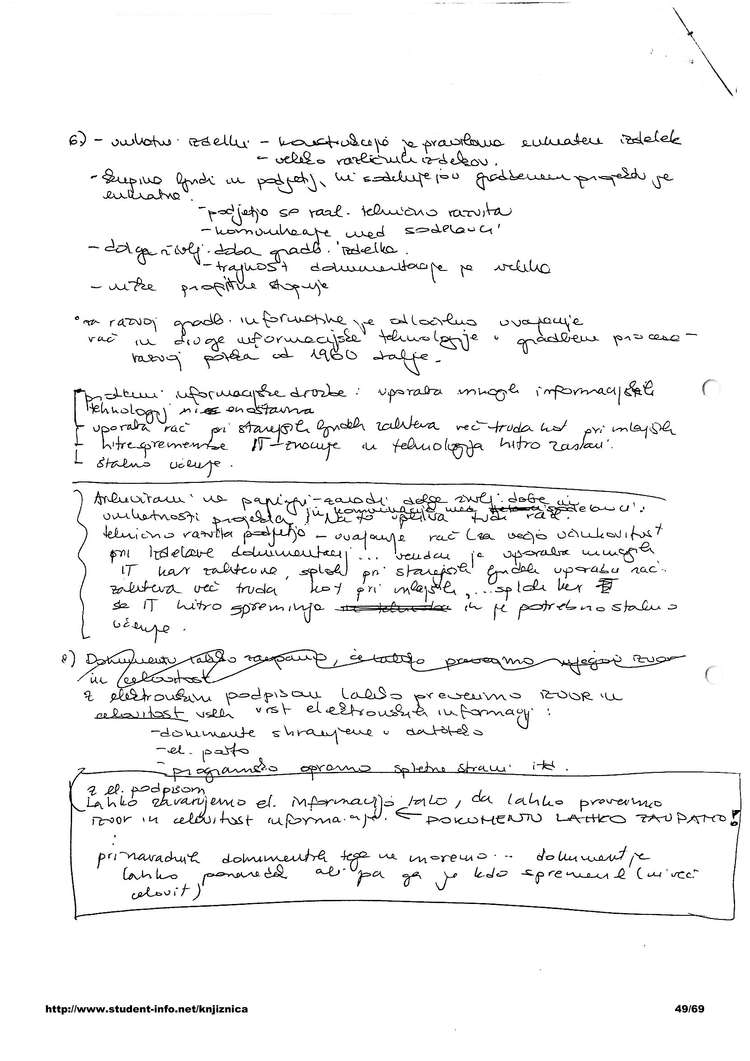 6.) - unikatni izdelki - konstrukcijo je praviloma unikaten izdelek
- veliko različnih izdelkov.
- Skupina ljudi in podjetij, ki sodelujejo v gradbenem projektu je
unikatna.
- podjetja so razl. tehnično razvita
- komunikacije med sodelavci
- dolga življ. doba gradb. izdelka.
- trajnost dokumentacije je velika
- nizke profitne stopnje
za razvoj gradb. informatike je odločilno uvajanje
rač in druge informacijske tehnologije v gradbene procese -
razvoj poteka od 1960 dalje.
problemi informacijske družbe: uporaba mnogih informacijskih
tehnologij ni enostavna
- uporaba rač pri starejših ljudeh zahteva več truda kot pri mlajših
- hitre spremembe IT - znanje in tehnologija hitro zastari.
- stalno učenje.
Arhiviranje na papirju - zaradi dolge življ. dobe in
unikatnosti projekta, in komunikacija med sodelavci.
Na to vpliva tudi raz.
tehnično razvita podjetja - uvajanje rač (za večjo učinkovitost
pri izdelave dokumentacij... vendar je uporaba mnogih
IT kar zahtevna, sploh pri starejših ljudeh uporaba rač.
zahteva več truda kot pri mlajših, ... sploh ker
se IT hitro spreminja in je potrebno stalno
učenje.
8) Dokumentu lahko zaupamo, če lahko preverimo njegov izvor
in celovitost
z elektronskim podpisom lahko preverimo izvor in
celovitost vseh vrst elektronskih informacij:
- dokumente shranjene v datoteko
- el. pošto
- programsko opremo spletne strani itd.
z el. podpisom
Lahko zavarujemo el. informacijo tako, da lahko preverimo
izvor in celovitost informacije. ← DOKUMENTU LAHKO ZAUPAMO!
:
pri navadnih dokumentih tega ne moremo... dokument je
lahko ponaredek ali pa ga je kdo spremenil (ni več
celovit)
http://www.student-info.net/knjiznica
49/69